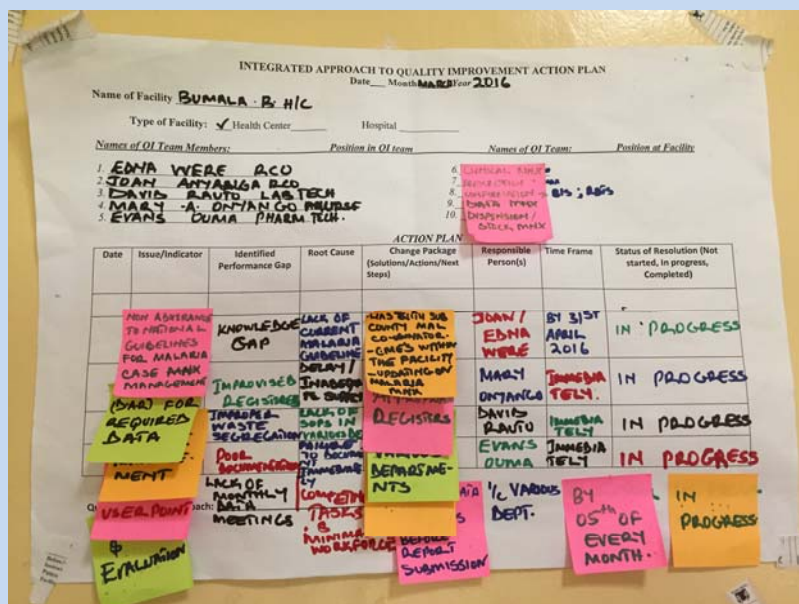 INTEGRATED APPROACH TO QUALITY IMPROVEMENT ACTION PLAN
Date___ Month MARCH Year 2016
Name of Facility BUMALA B. H/C
Type of Facility: ✓ Health Center______ Hospital ______
Names of QI Team Members: Position in QI team Names of QI Team: Position at Facility
1. EDNA WERE RCO
2. JOAN ANYANGA RCO
3. DAVID RAUTO LAB TECH
4. MARY A. ONYANGO
5. EVANS OUMA PHARM. TECH.
6.
7.
8.
9. DATA MNX
10. DISPENSION/
STOCK MNX
ACTION PLAN
Date
Issue/Indicator
Identified
Performance Gap
Root Cause
Change Package
(Solutions/Actions/Next
Steps)
Responsible
Person(s)
Time Frame
Status of Resolution (Not
started, In progress,
Completed)
NON ADHERANCE
TO NATIONAL
GUIDELINES
FOR MALARIA
CASE MNX
MANAGEMENT
KNOWLEDGE
GAP
LACK OF
CURRENT
MALARIA
GUIDELINE
SUB
COUNTY MAL
CO-ORDINATOR
-CME'S WITHIN
THE FACILITY
-UPDATING ON
MALARIA
MNX
JOAN /
EDNA
WERE
BY 31ST
APRIL
2016
IN PROGRESS
(DAR) FOR
REQUIRED
DATA
IMPROVISED
REGISTERS
DELAY /
REGISTERS
MARY
ONYANGO
IMMEDIA
TELY.
IN PROGRESS
MENT
IMPROPER
WASTE
SEGREGATION
LACK OF
SOPS IN
VARIOUS
DEPARTME-
NTS
DAVID
RAUTO
IMMEDIA
TELY
IN PROGRESS
USER POINT
POOR
DOCUMENTATION
EVANS
OUMA
IMMEDIA
TELY
IN PROGRESS
&
EVALUATION
LACK OF
MONTHLY
DATA
MEETINGS
TASKS
&
MINIMAL
WORKFORCE
BEFORE
REPORT
SUBMISSION
I/C VARIOUS
DEPT.
BY
05th OF
EVERY
MONTH.
IN
PROGRESS